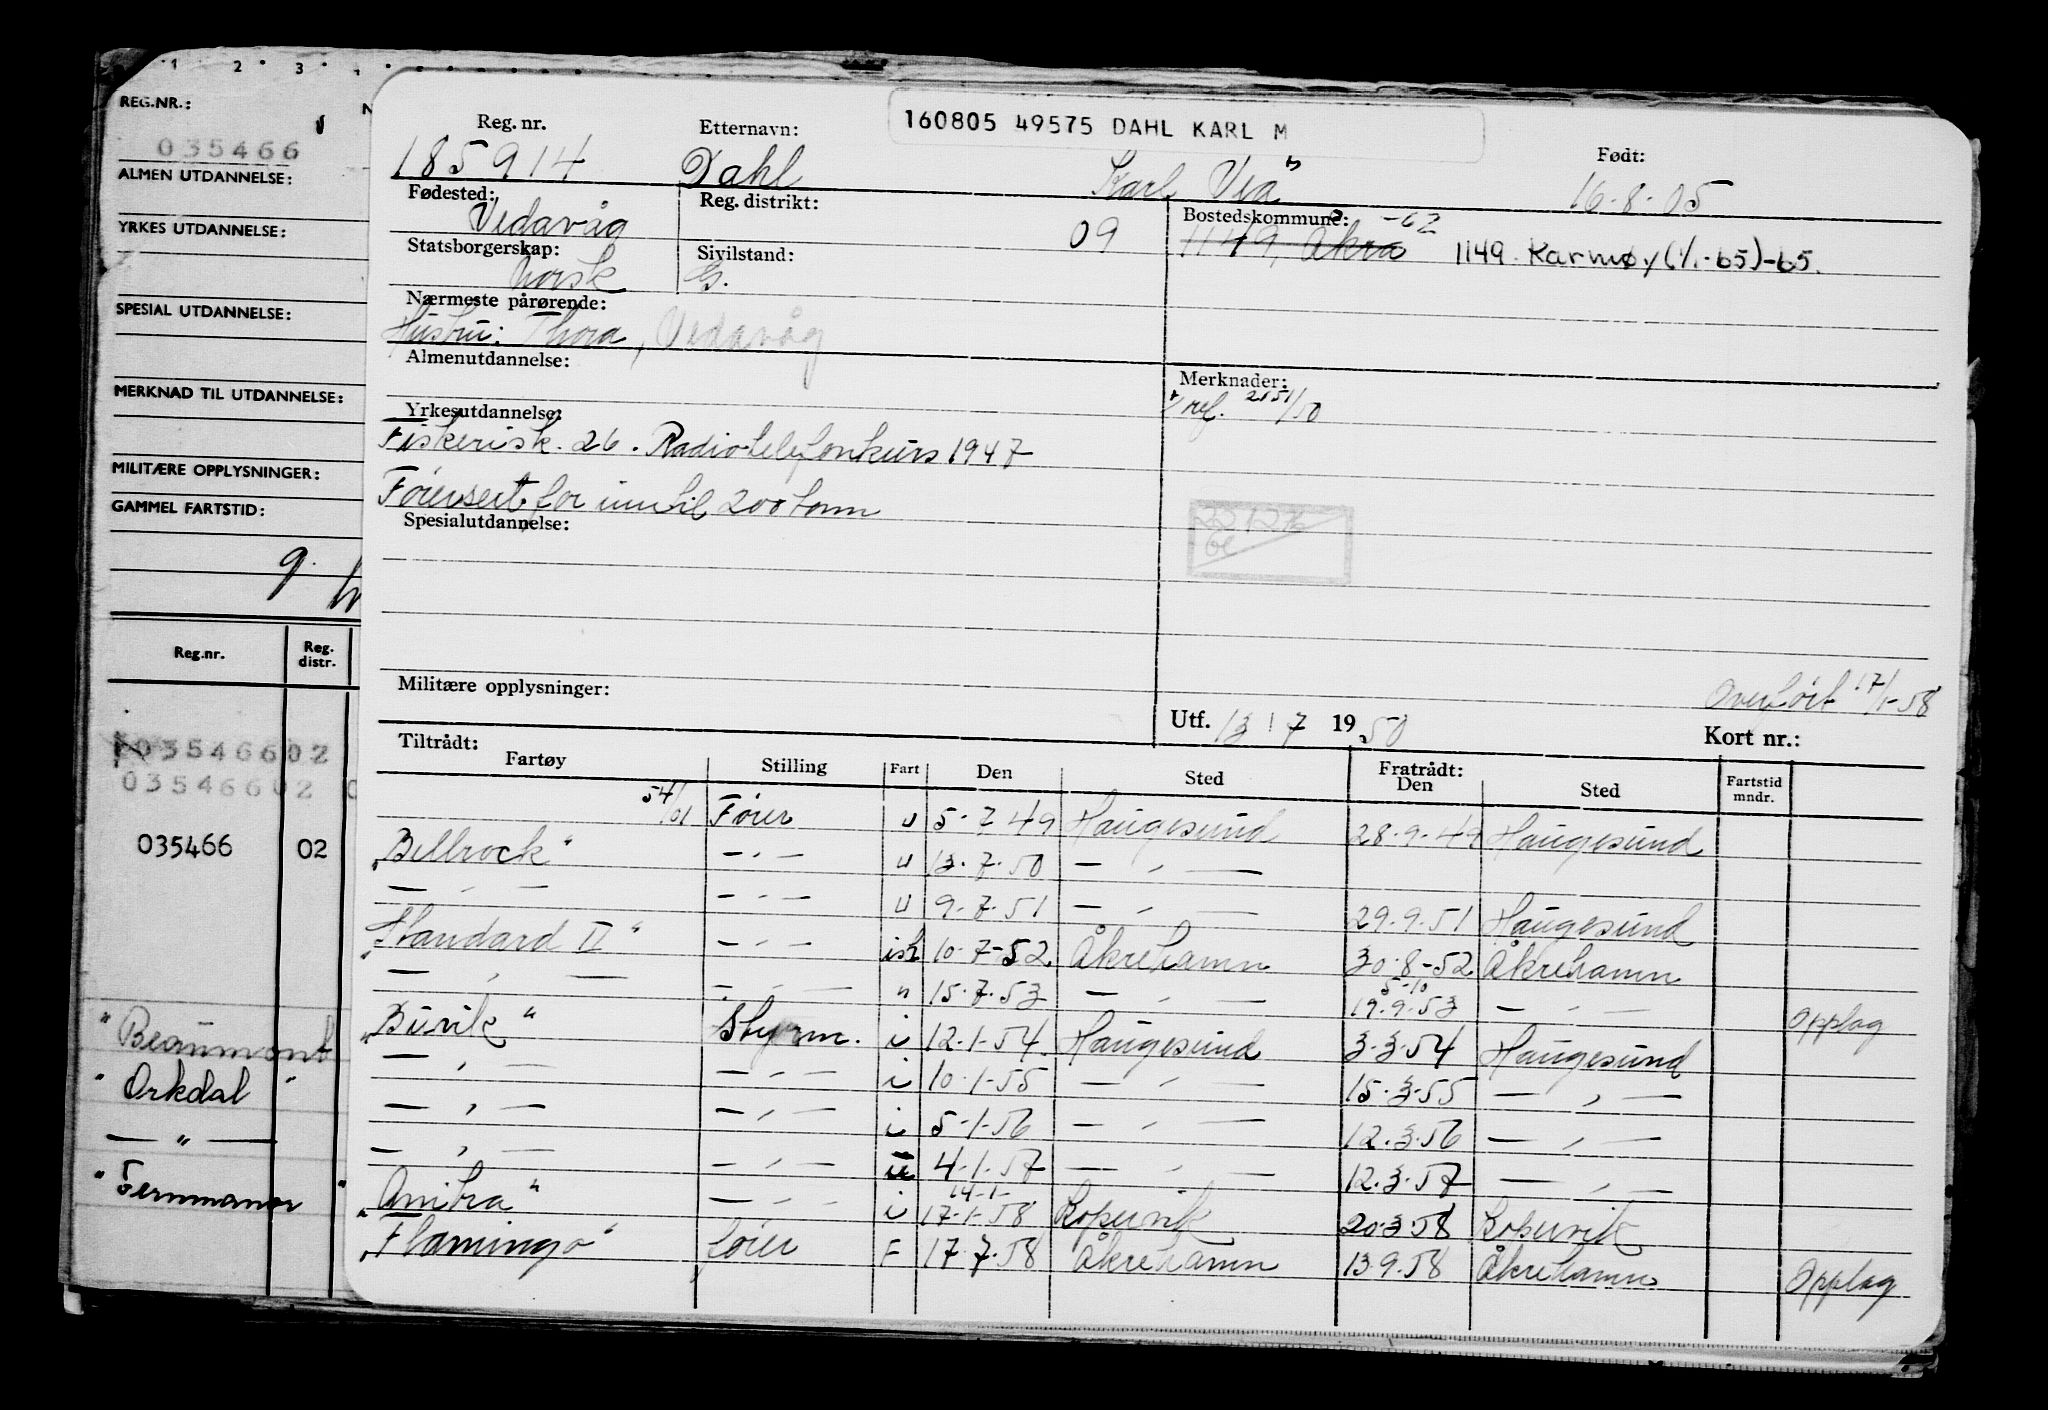 1 2 3
REG.NR.:
035466
ALMEN UTDANNELSE:
YRKES UTDANNELSE:
SPESIAL UTDANNELSE:
MERKNAD TIL UTDANNELSE:
MILITÆRE OPPLYSNINGER:
GAMMEL FARTSTID:
9.
Reg.nr. Reg. distr.
03546602
03546602 0
035466 02
"Beaumont
"Orkdal"
— " —
"Fernmanor"
160805 49575 DAHL KARL M
Reg. nr. Etternavn: Født:
185914 Dahl Karl Vea 16-8-05
Fødested: Reg. distrikt: Bostedskommune: -62
Vedavåg 09 1149, Åkra 1149 Karmøy (1/1-65)-65.
Statsborgerskap: Sivilstand:
Norsk G.
Nærmeste pårørende:
Hustru: Thora, Vedavåg
Almenutdannelse: Merknader:
ref. 2151/50
Yrkesutdannelse:
Fiskerisk. 26. Radiotelefonkurs 1947
Føiersert for inntil 200 tonn
Spesialutdannelse:
Militære opplysninger: Overført 17/1-58
Utf. 13/7 1950 Kort nr.:
Tiltrådt: Fratrådt:
Fartøy Stilling Fart Den Sted Den Sted Fartstid mndr.
54/01 Føier u 5-7 49 Haugesund 28-9-49 Haugesund
"Bellrock" — " — u 13-7-50 — " —
— " — — " — u 9-7-51 — " — 29-9-51 Haugesund
"Standard II" — " — ish 10-7-52 Åkrehamn 30-8-52 Åkrehamn
— " — — " — " 15-7-53 — " — 5-10 19-9-53 — " — Opplag
"Burvik" Styrm. i 12-1-54 Haugesund 3-3-54 Haugesund
— " — — " — i 10-1-55 — " — 15-3-55 — " —
— " — — " — i 5-1-56 — " — 12-3-56 — " —
— " — — " — i 4-1-57 — " — 12-3-57 — " —
"Anitra" — " — i 14-1- 17-1-58 Kopervik 20-3-58 Kopervik
"Flamingo" føier F 17-7-58 Åkrehamn 13-9-58 Åkrehamn Opplag